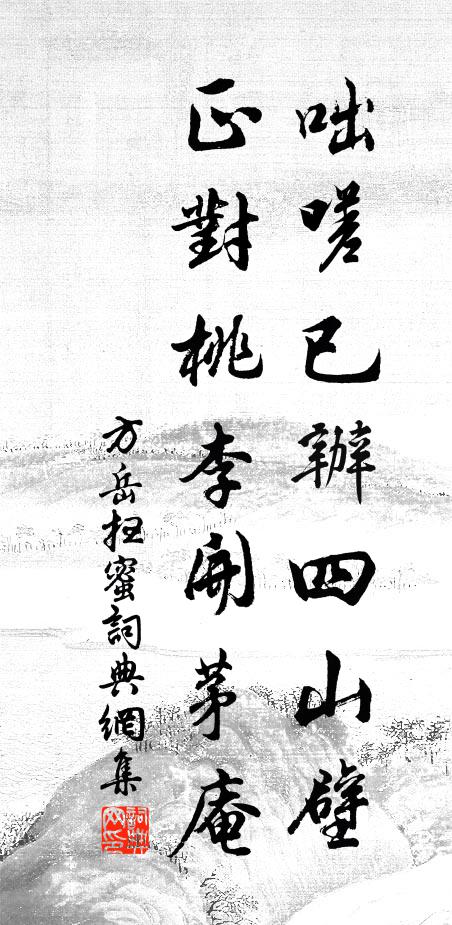 咄嗟已辦四山壁
正對桃李開茅庵
方岳抂蜜詞典網集
詞典網印